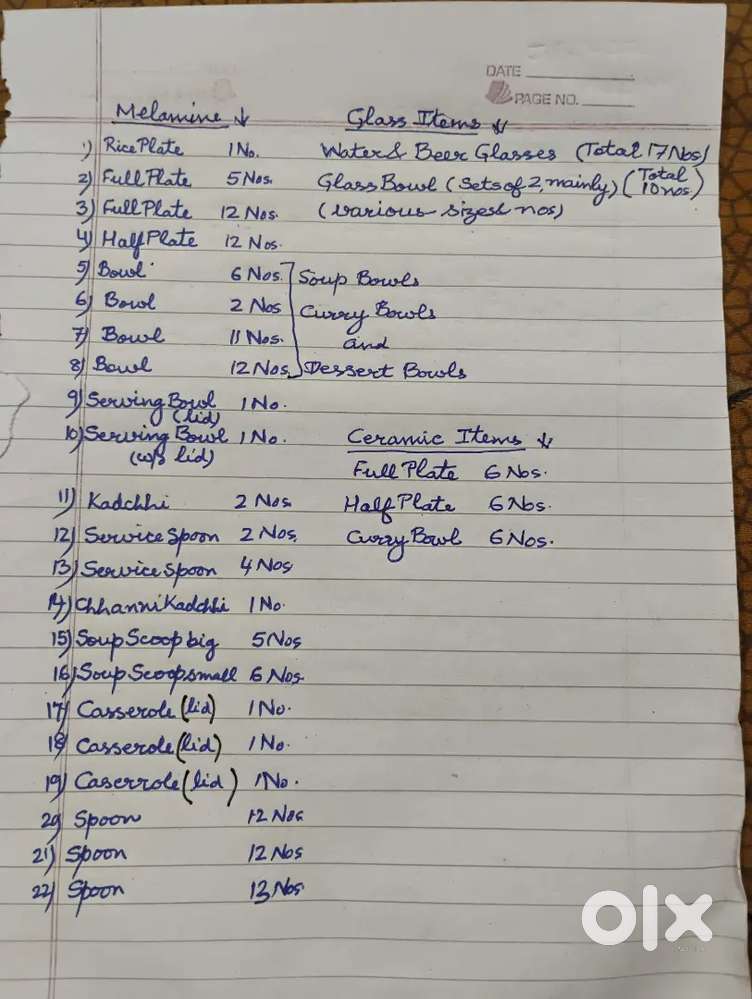 DATE
PAGE NO.
Melamine ↓
1) Rice Plate 1 No.
2) Full Plate 5 Nos.
3) Full Plate 12 Nos.
4) Half Plate 12 Nos.
5) Bowl 6 Nos.
6) Bowl 2 Nos
7) Bowl 11 Nos.
8) Bowl 12 Nos.
Soup Bowls
Curry Bowls
and
Dessert Bowls
9) Serving Bowl 1 No.
(lid)
10) Serving Bowl 1 No.
(w/o lid)
11) Kadchhi 2 Nos.
12) Service Spoon 2 Nos.
13) Service Spoon 4 Nos
14) Chhanni Kadchhi 1 No.
15) Soup Scoop big 5 Nos
16) Soup Scoop small 6 Nos.
17) Casserole (lid) 1 No.
18) Casserole (lid) 1 No.
19) Caserrole (lid) 1 No.
20) Spoon 12 Nos
21) Spoon 12 Nos
22) Spoon 13 Nos
Glass Items ↓
Water & Beer Glasses (Total 17 Nos)
Glass Bowl (Sets of 2, mainly) (Total 10 nos.)
(various sizes & nos)
Ceramic Items ↓
Full Plate 6 Nos.
Half Plate 6 Nos.
Curry Bowl 6 Nos.
olx